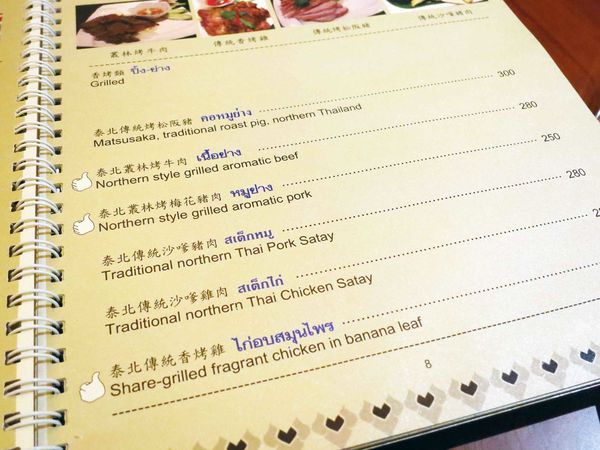 叢林烤牛肉
傳統香烤雞
傳統烤松阪豬
傳統沙嗲豬肉
香烤類 ปิ้ง-ย่าง
Grilled
泰北傳統烤松阪豬 คอหมูย่าง 300
Matsusaka, traditional roast pig, northern Thailand
泰北叢林烤牛肉 เนื้อย่าง 280
Northern style grilled aromatic beef
泰北叢林烤梅花豬肉 หมูย่าง 250
Northern style grilled aromatic pork
泰北傳統沙嗲豬肉 สเต็กหมู 280
Traditional northern Thai Pork Satay
泰北傳統沙嗲雞肉 สเต็กไก่
Traditional northern Thai Chicken Satay
泰北傳統香烤雞 ไก่อบสมุนไพร
Share-grilled fragrant chicken in banana leaf
8